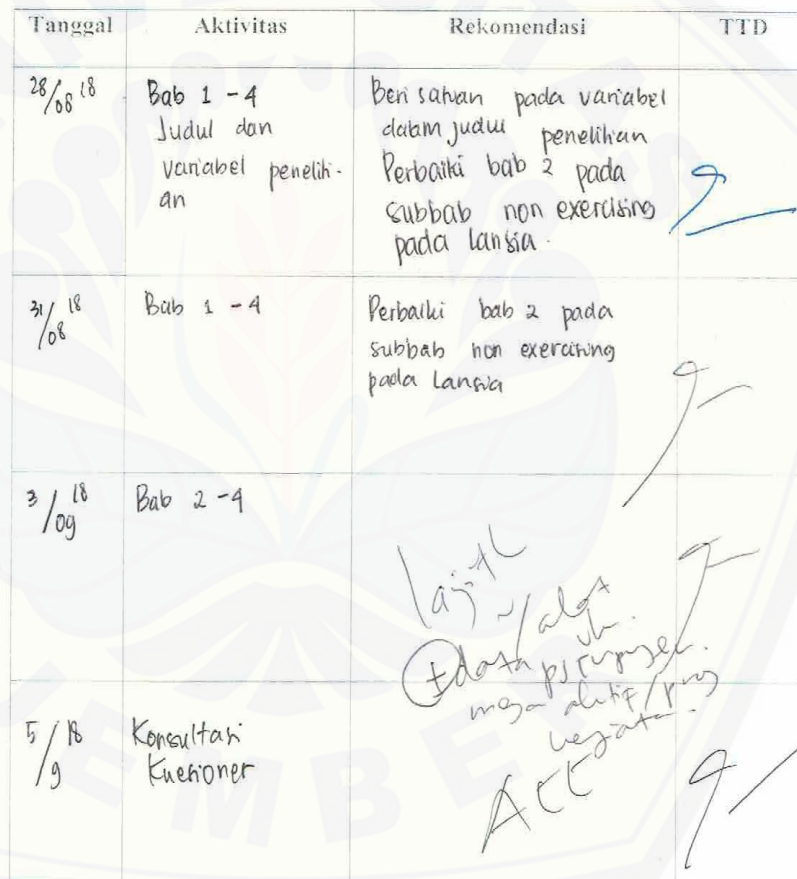 Tanggal Aktivitas Rekomendasi TTD
28/08 18
Bab 1 - 4
Judul dan
variabel peneliti-
an
Beri satuan pada variabel
dalam judul penelitian
Perbaiki bab 2 pada
subbab non exercising
pada lansia.
31/08 18
Bab 1 - 4
Perbaiki bab 2 pada
subbab non exercising
pada Lansia
3/09 18
Bab 2 - 4
alat
+ data
5/9 18
Konsultasi
Kuesioner
ACC
EMBER